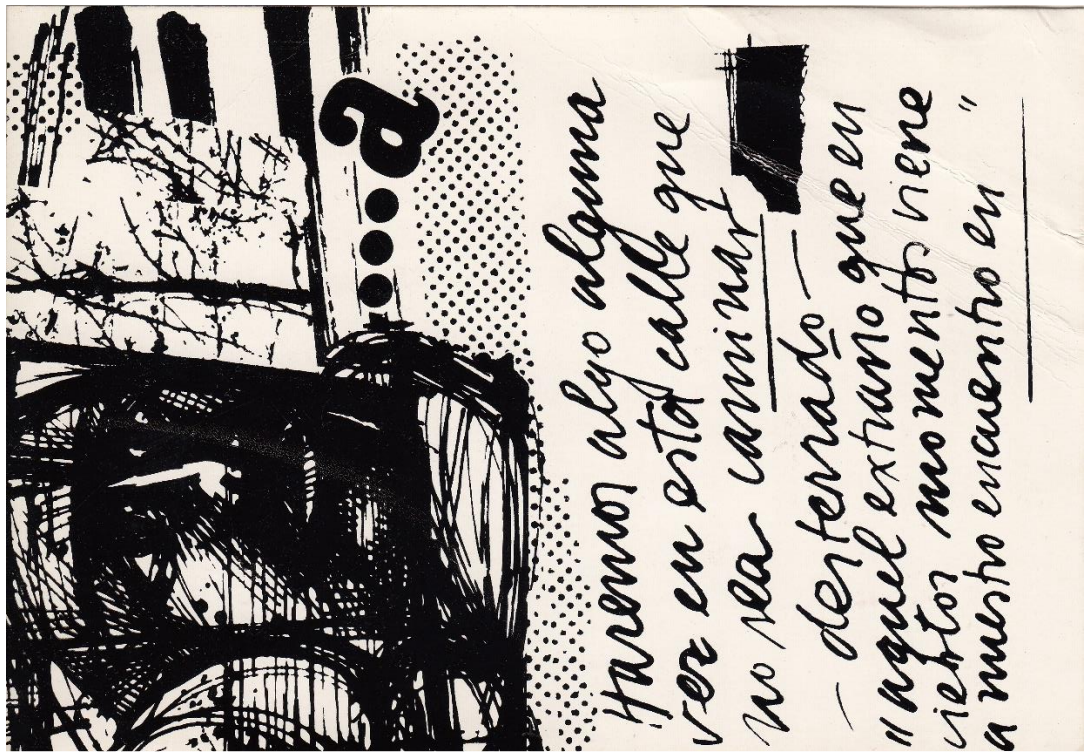 a...
Haremos algo alguna
vez en esta calle que
no sea caminar
— desterrado —
"aquel extraño que en
ciertos momentos viene
a nuestro encuentro en"